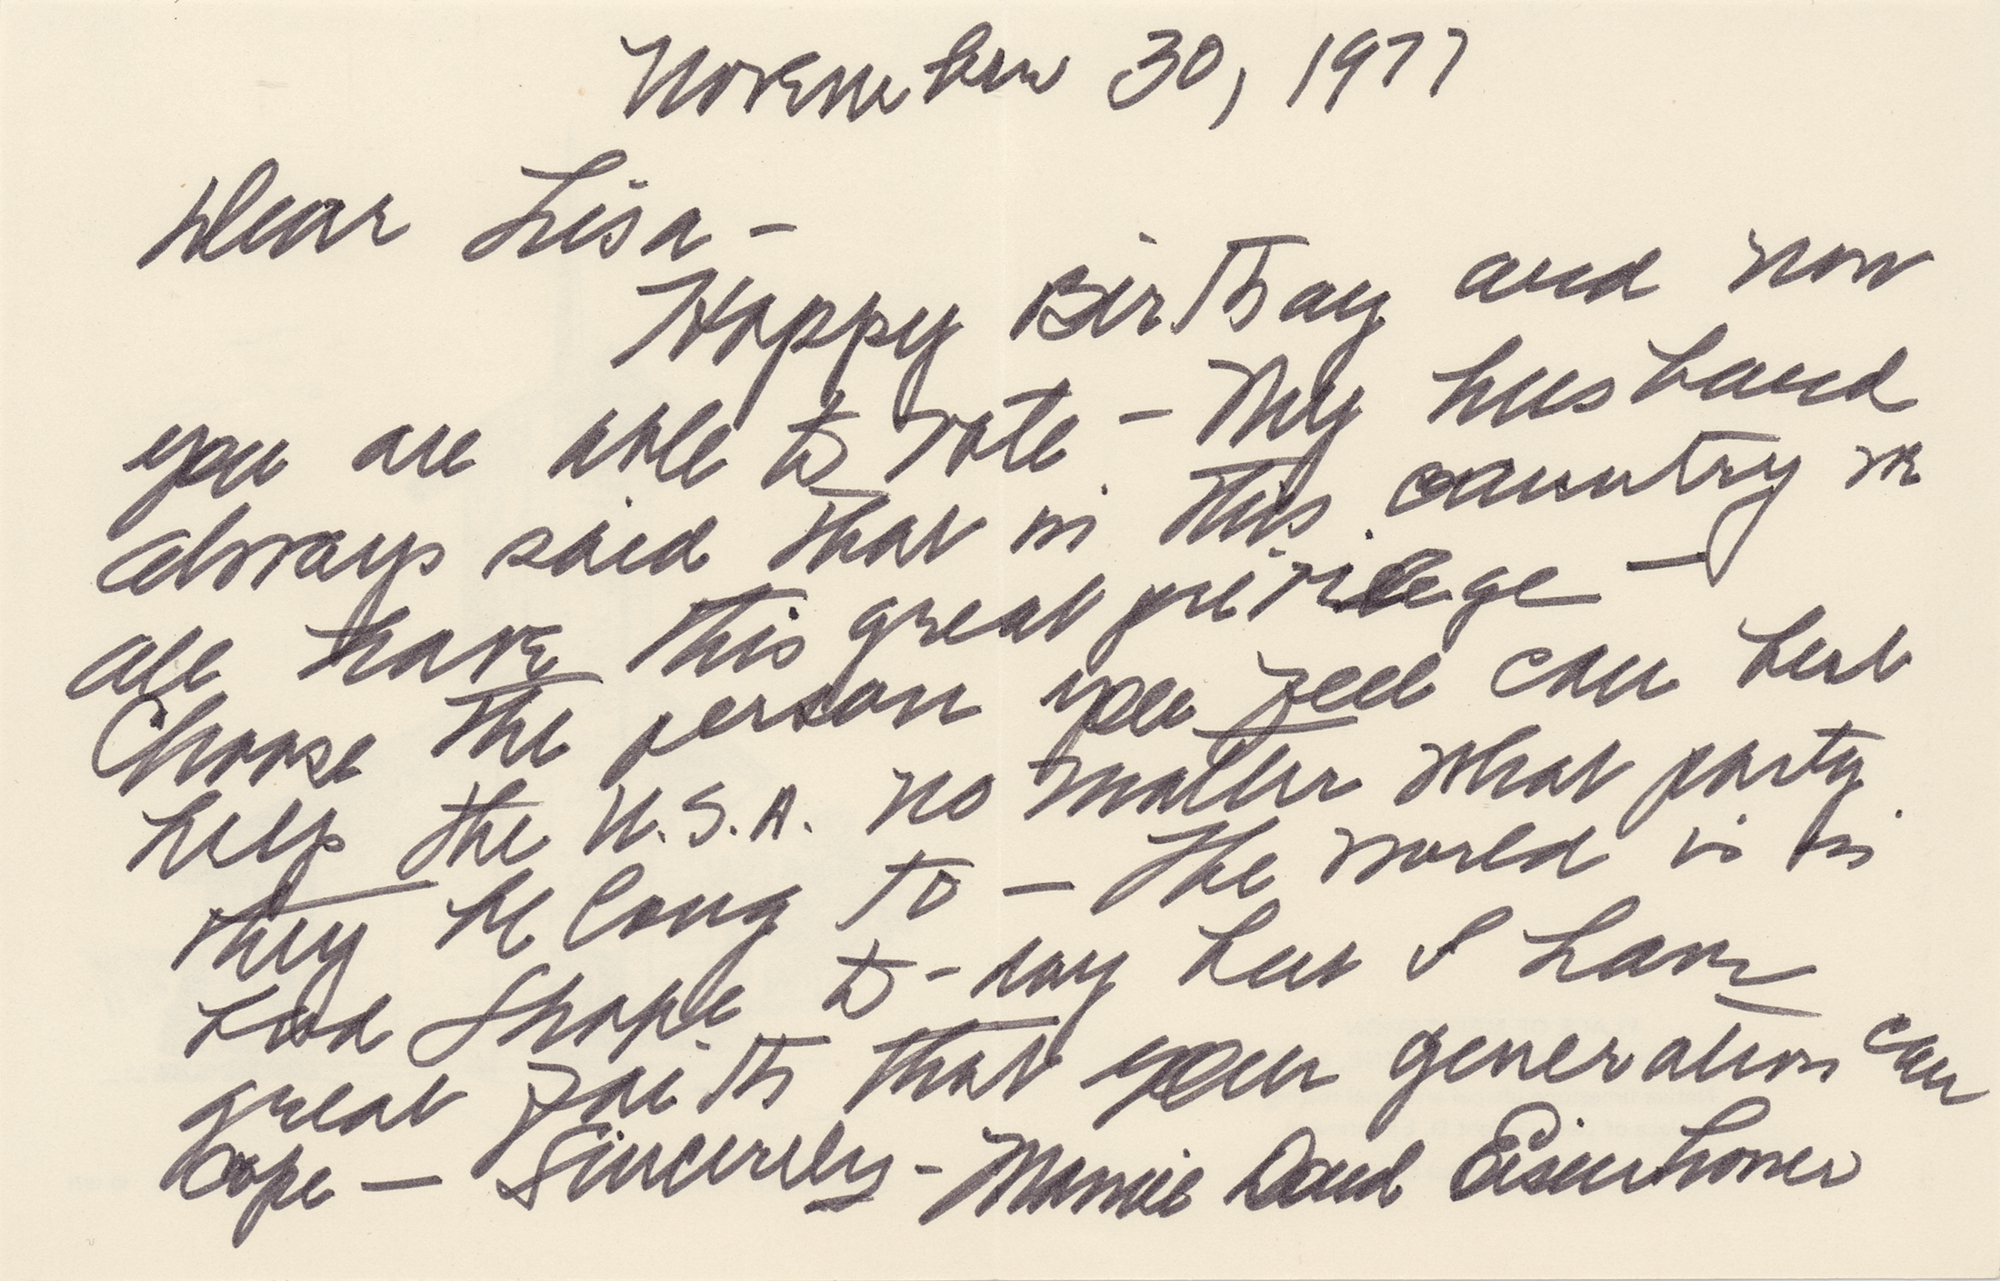 November 30, 1977
Dear Lisa -
Happy Birthday and now
you are able to vote - My husband
always said that in this country we
all have this great privilege —
Choose the person you feel can best
help the U.S.A. no matter what party
they belong to — The world is in
bad shape to-day but I have
great faith that your generation can
cope — Sincerely - Mamie Doud Eisenhower